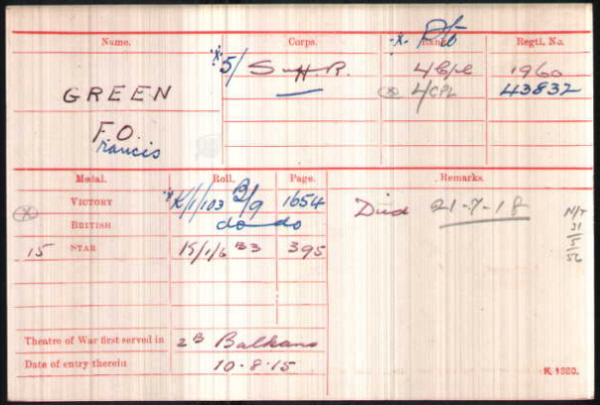 Name. Corps. Rank. Regtl. No.
* Pte
*5/ Suff. R. L/Cpl 1960
GREEN L/CPL 43832
F.O.
Francis
Medal. Roll. Page. Remarks.
VICTORY *K/1/103 B/9 1654 Died 21-7-18
BRITISH do do
15 STAR K/1/6 B3 395
N/T
31
5
56
Theatre of War first served in 2B Balkans
Date of entry therein 10-8-15
K. 1380.